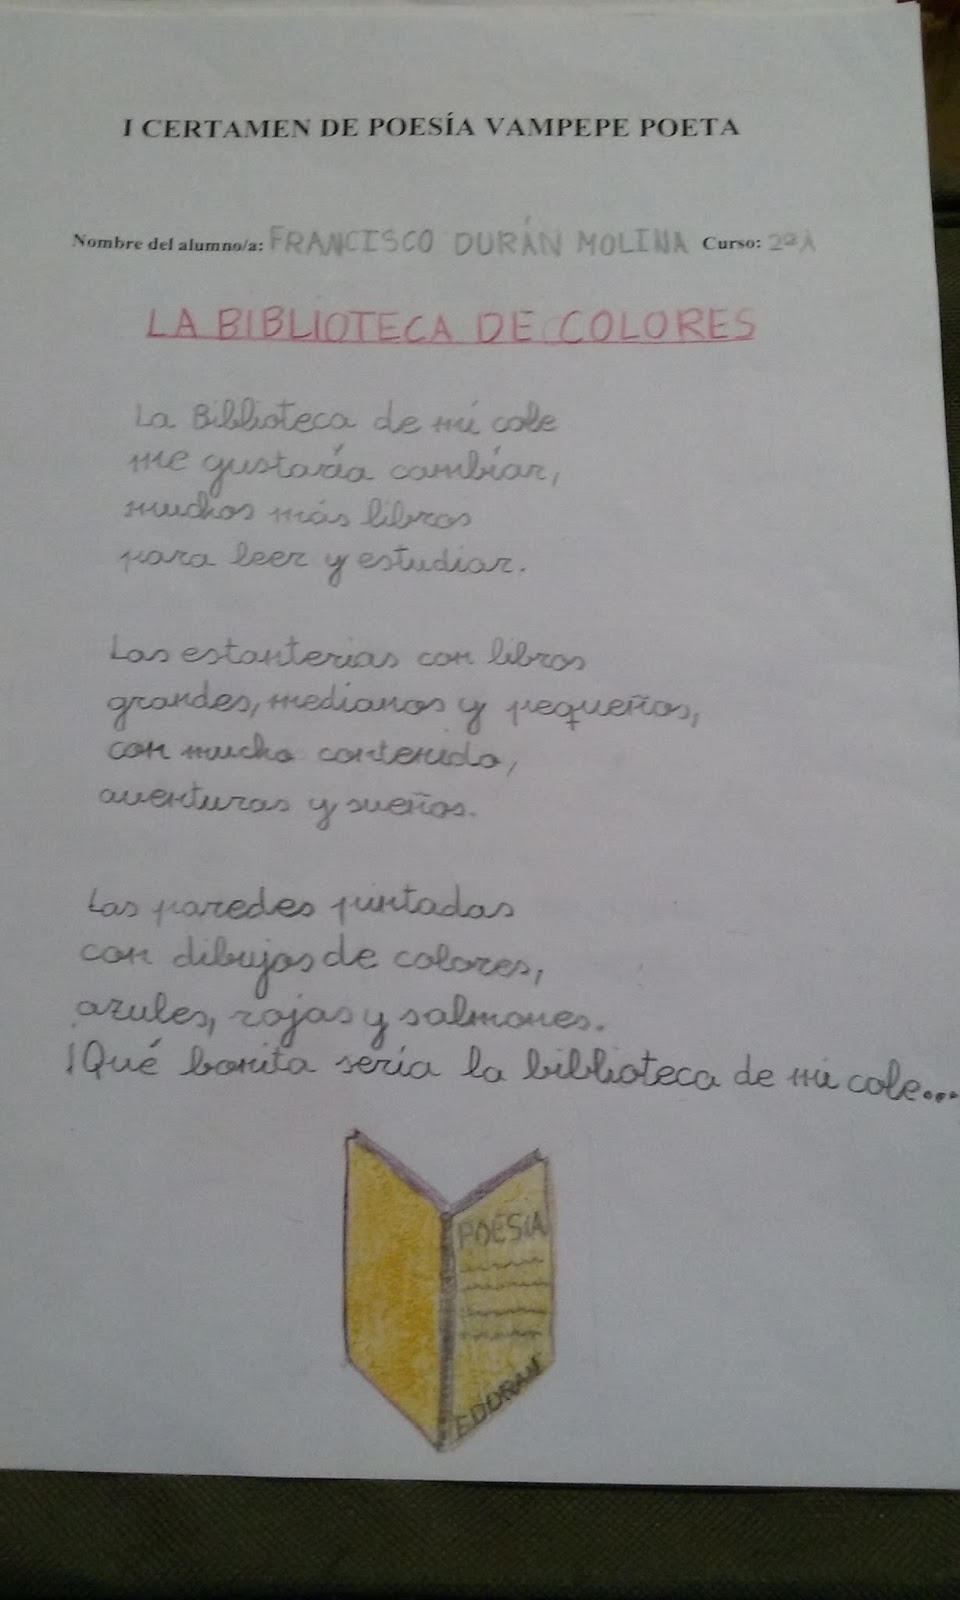 I CERTAMEN DE POESÍA VAMPEPE POETA
Nombre del alumno/a: FRANCISCO DURÁN MOLINA Curso: 2º A
LA BIBLIOTECA DE COLORES
La Biblioteca de mi cole
me gustaría cambiar,
muchos más libros
para leer y estudiar.
Las estanterias con libros
grandes, medianos y pequeños,
con mucho contenido,
aventuras y sueños.
Las paredes pintadas
con dibujos de colores,
azules, rojas y salmones.
¡Qué bonita sería la biblioteca de mi cole...
POESIA